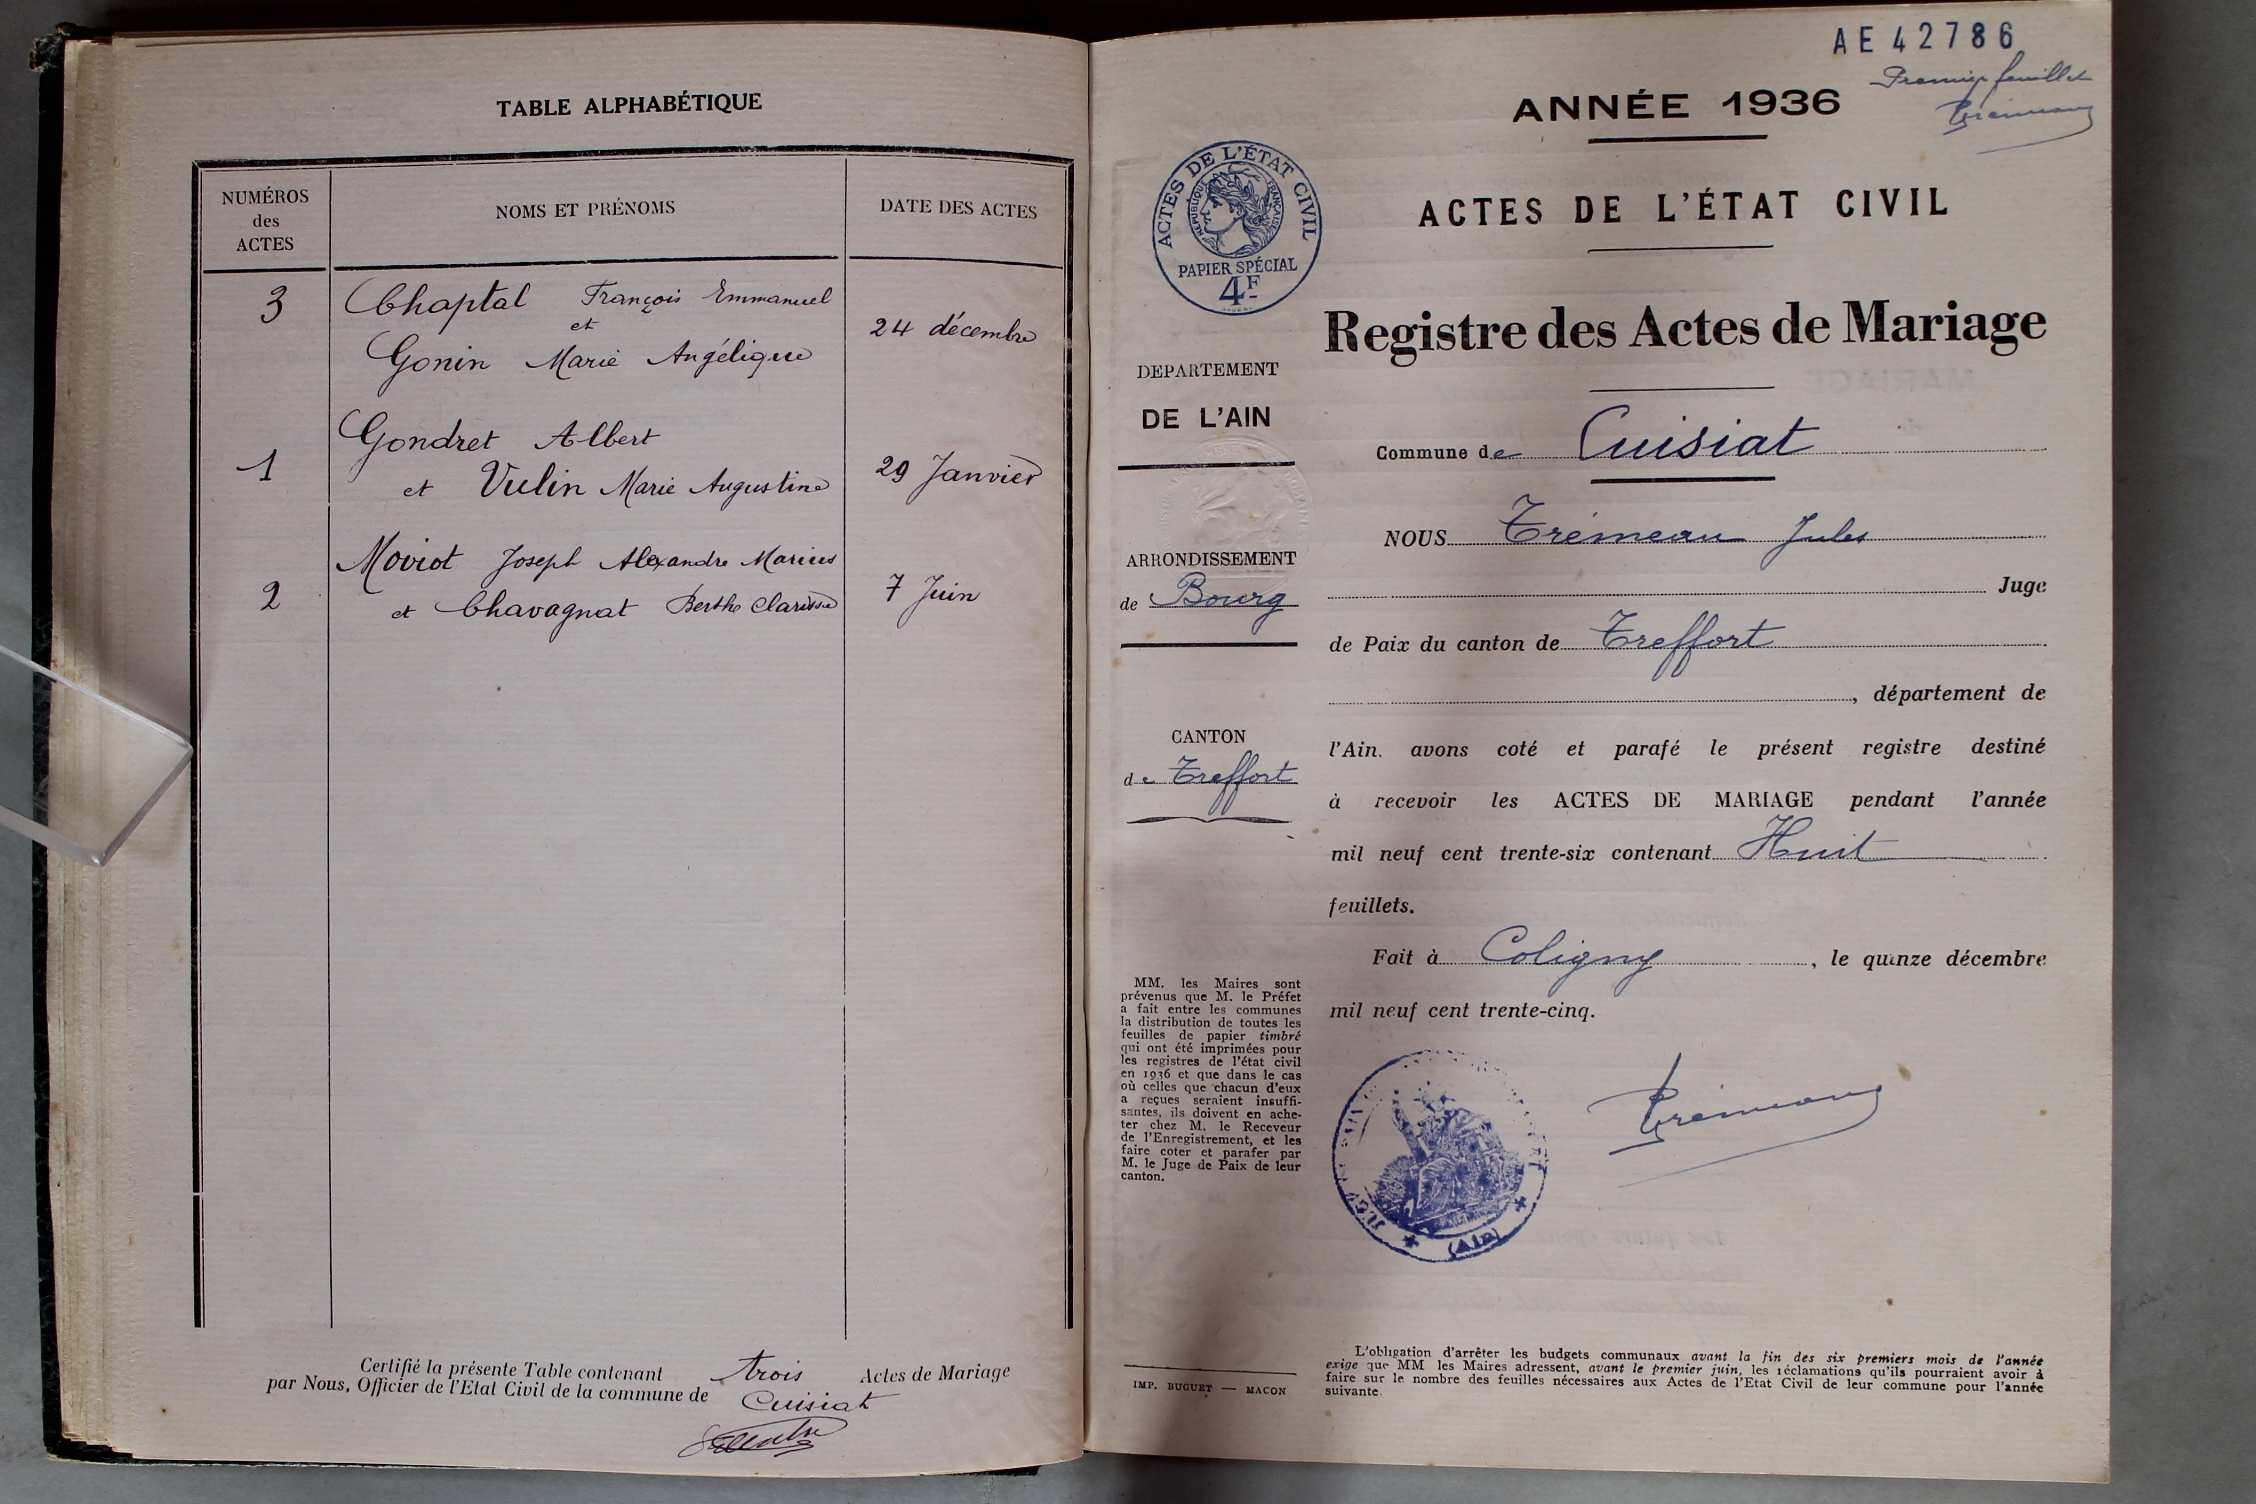 TABLE ALPHABÉTIQUE
NUMÉROS
des
ACTES
NOMS ET PRÉNOMS
DATE DES ACTES
3
Chaptal François Emmanuel
et
Gonin Marie Angélique
24 décembre
1
Gondret Albert
et Vulin Marie Augustine
29 Janvier
2
Moviot Joseph Alexandre Marius
et Chavagnat Berthe Clarisse
7 Juin
Certifié la présente Table contenant trois Actes de Mariage
par Nous, Officier de l'Etat Civil de la commune de Cuisiat
AE 42786
Premier feuillet
Trémeau
ANNÉE 1936
ACTES DE L'ÉTAT CIVIL
RÉPUBLIQUE FRANÇAISE
PAPIER SPÉCIAL
4F
ACTES DE L'ÉTAT CIVIL
Registre des Actes de Mariage
DEPARTEMENT
DE L'AIN
ARRONDISSEMENT
de Bourg
CANTON
de Treffort
Commune de Cuisiat
NOUS Trémeau Jules
Juge
de Paix du canton de Treffort
, département de
l'Ain, avons coté et parafé le présent registre destiné
à recevoir les ACTES DE MARIAGE pendant l'année
mil neuf cent trente-six contenant Huit
feuillets.
Fait à Coligny, le quinze décembre
mil neuf cent trente-cinq.
Trémeau
(Ain)
MM. les Maires sont
prévenus que M. le Préfet
a fait entre les communes
la distribution de toutes les
feuilles de papier timbré
qui ont été imprimées pour
les registres de l'état civil
en 1936 et que dans le cas
où celles que chacun d'eux
a reçues seraient insuffi-
santes, ils doivent en ache-
ter chez M. le Receveur
de l'Enregistrement, et les
faire coter et parafer par
M. le Juge de Paix de leur
canton.
IMP. BUGUET — MACON
L'obligation d'arrêter les budgets communaux avant la fin des six premiers mois de l'année
exige que MM les Maires adressent, avant le premier juin, les réclamations qu'ils pourraient avoir à
faire sur le nombre des feuilles nécessaires aux Actes de l'Etat Civil de leur commune pour l'année
suivante.